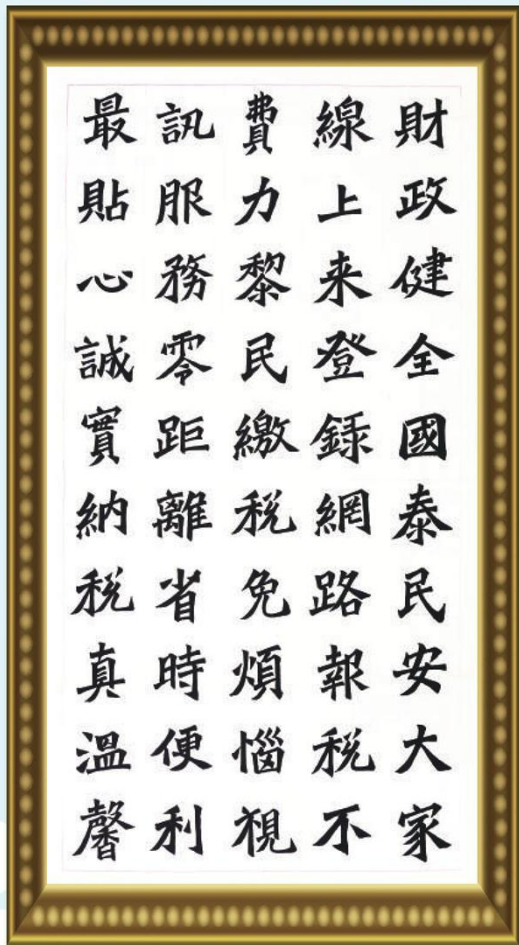 財政健全國泰民安大家
線上来登錄網路報税不
費力黎民繳税免煩惱視
訊服務零距離省時便利
最貼心誠實納税真溫馨